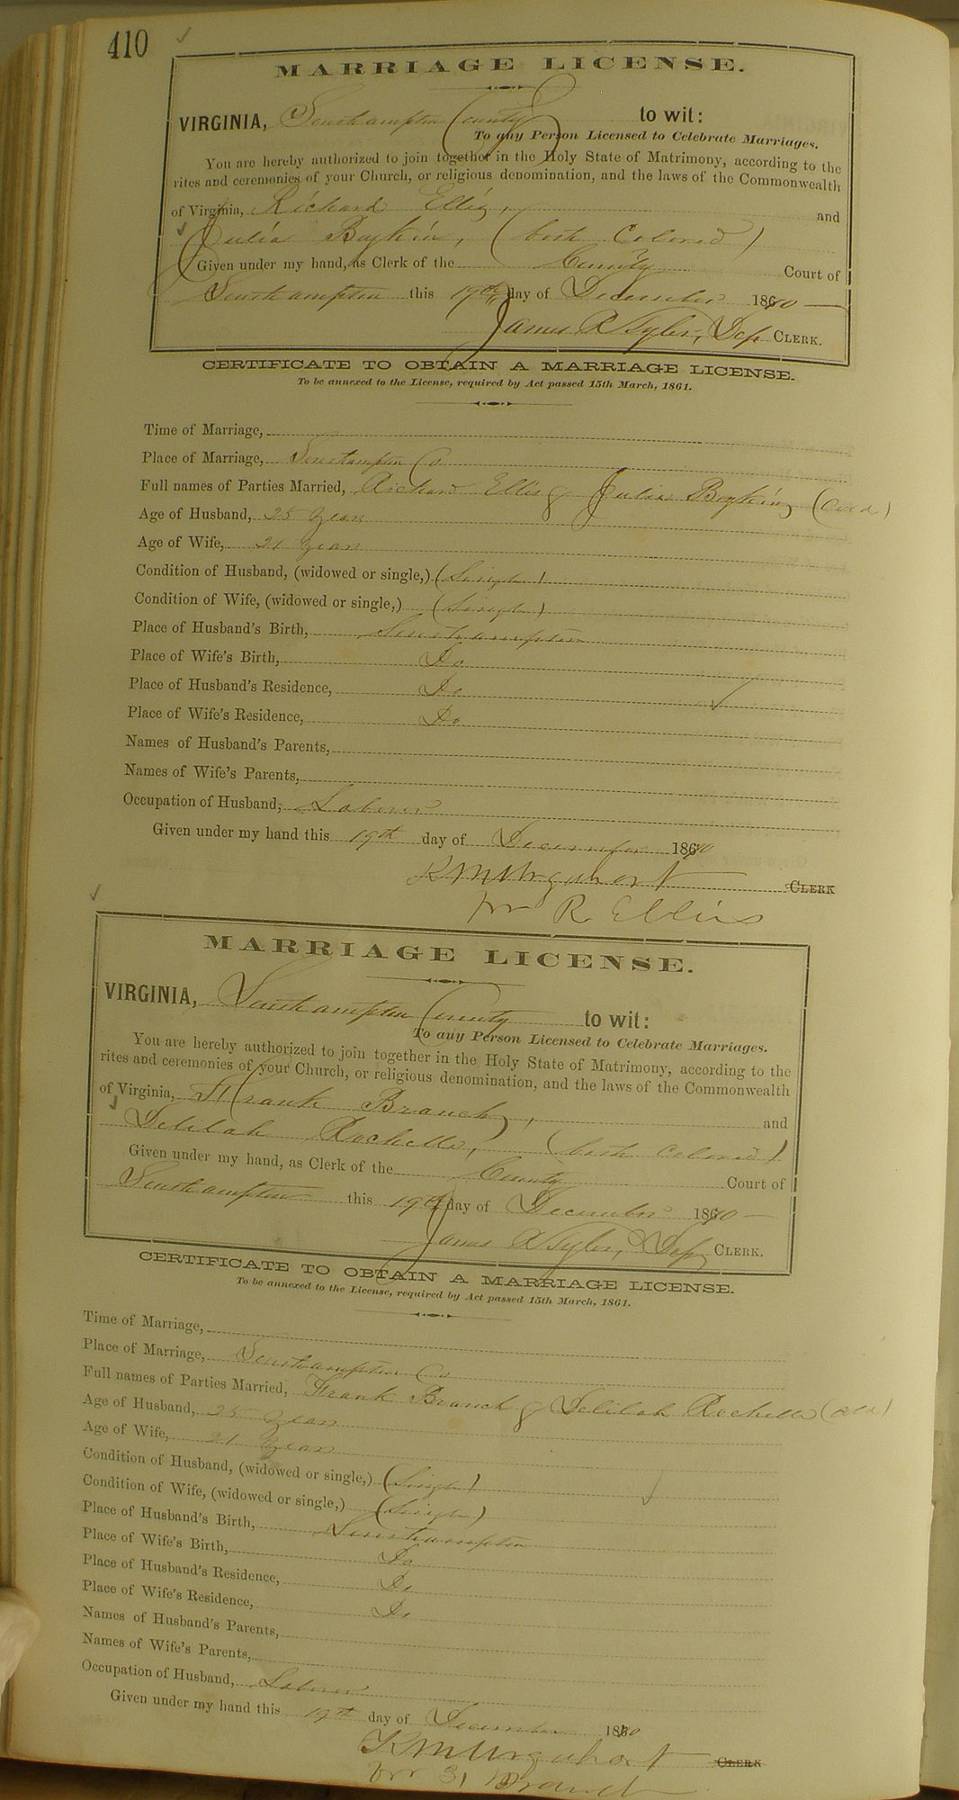 410
MARRIAGE LICENSE.
VIRGINIA, Southampton County to wit:
To any Person Licensed to Celebrate Marriages.
You are hereby authorized to join together in the Holy State of Matrimony, according to the
rites and ceremonies of your Church, or religious denomination, and the laws of the Commonwealth
of Virginia, Richard Ellis, and
Julia Boykin, (both Colored)
Given under my hand, as Clerk of the County Court of
Southampton this 19th day of December 1870
James R Tyler, Dep CLERK.
CERTIFICATE TO OBTAIN A MARRIAGE LICENSE.
To be annexed to the License, required by Act passed 15th March, 1861.
Time of Marriage,
Place of Marriage, Southampton Co
Full names of Parties Married, Richard Ellis & Julia Boykin (Cold)
Age of Husband, 25 Years
Age of Wife, 21 Years
Condition of Husband, (widowed or single,) (Single)
Condition of Wife, (widowed or single,) (Single)
Place of Husband's Birth, Southampton
Place of Wife's Birth, Do
Place of Husband's Residence, Do
Place of Wife's Residence, Do
Names of Husband's Parents,
Names of Wife's Parents,
Occupation of Husband, Laborer
Given under my hand this 19th day of December 1870
K M Urquhart CLERK
for R Ellis
MARRIAGE LICENSE.
VIRGINIA, Southampton County to wit:
To any Person Licensed to Celebrate Marriages.
You are hereby authorized to join together in the Holy State of Matrimony, according to the
rites and ceremonies of your Church, or religious denomination, and the laws of the Commonwealth
of Virginia, Frank Branch, and
Delilah Rochelle, (both Colored)
Given under my hand, as Clerk of the County Court of
Southampton this 19th day of December 1870
James R Tyler, Dep CLERK.
CERTIFICATE TO OBTAIN A MARRIAGE LICENSE.
To be annexed to the License, required by Act passed 15th March, 1861.
Time of Marriage,
Place of Marriage, Southampton Co
Full names of Parties Married, Frank Branch & Delilah Rochelle (Cold)
Age of Husband, 25 Years
Age of Wife, 21 Years
Condition of Husband, (widowed or single,) (Single)
Condition of Wife, (widowed or single,) (Single)
Place of Husband's Birth, Southampton
Place of Wife's Birth, Do
Place of Husband's Residence, Do
Place of Wife's Residence, Do
Names of Husband's Parents,
Names of Wife's Parents,
Occupation of Husband, Laborer
Given under my hand this 19th day of December 1870
K M Urquhart CLERK
for Branch